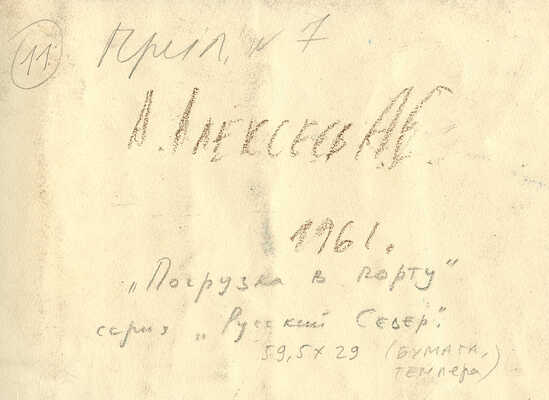 11
№ 7
А. Алексеев
1961.
„Погрузка в порту“
серия „Русский Север“.
59,5х29 (бумага,
темпера)